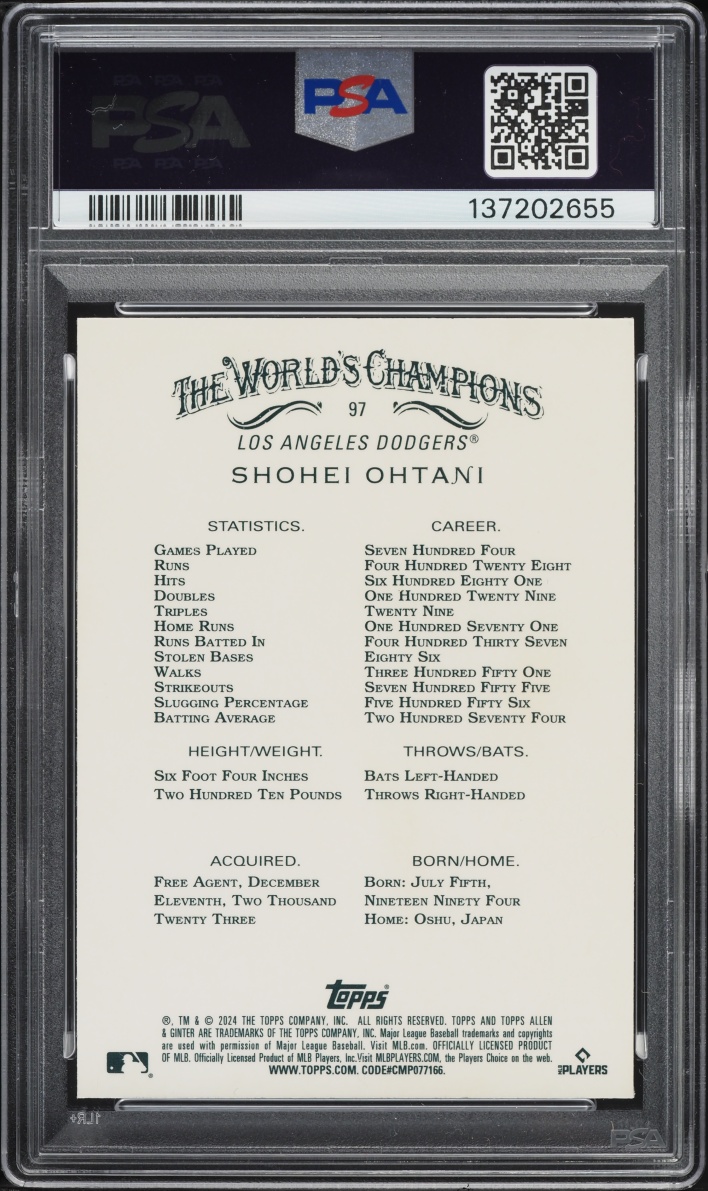 PSA PSA PSA
PSA
PSA PSA PSA
PSA
137202655
THE WORLD'S CHAMPIONS
97
LOS ANGELES DODGERS®
SHOHEI OHTANI
STATISTICS. CAREER.
GAMES PLAYED SEVEN HUNDRED FOUR
RUNS FOUR HUNDRED TWENTY EIGHT
HITS SIX HUNDRED EIGHTY ONE
DOUBLES ONE HUNDRED TWENTY NINE
TRIPLES TWENTY NINE
HOME RUNS ONE HUNDRED SEVENTY ONE
RUNS BATTED IN FOUR HUNDRED THIRTY SEVEN
STOLEN BASES EIGHTY SIX
WALKS THREE HUNDRED FIFTY ONE
STRIKEOUTS SEVEN HUNDRED FIFTY FIVE
SLUGGING PERCENTAGE FIVE HUNDRED FIFTY SIX
BATTING AVERAGE TWO HUNDRED SEVENTY FOUR
HEIGHT/WEIGHT. THROWS/BATS.
SIX FOOT FOUR INCHES BATS LEFT-HANDED
TWO HUNDRED TEN POUNDS THROWS RIGHT-HANDED
ACQUIRED. BORN/HOME.
FREE AGENT, DECEMBER BORN: JULY FIFTH,
ELEVENTH, TWO THOUSAND NINETEEN NINETY FOUR
TWENTY THREE HOME: OSHU, JAPAN
Topps®
®, TM & © 2024 THE TOPPS COMPANY, INC. ALL RIGHTS RESERVED. TOPPS AND TOPPS ALLEN
& GINTER ARE TRADEMARKS OF THE TOPPS COMPANY, INC. Major League Baseball trademarks and copyrights
are used with permission of Major League Baseball. Visit MLB.com. OFFICIALLY LICENSED PRODUCT
OF MLB. Officially Licensed Product of MLB Players, Inc.Visit MLBPLAYERS.COM, the Players Choice on the web.
WWW.TOPPS.COM. CODE#CMP077166.
PLAYERS
1LR+
PSA